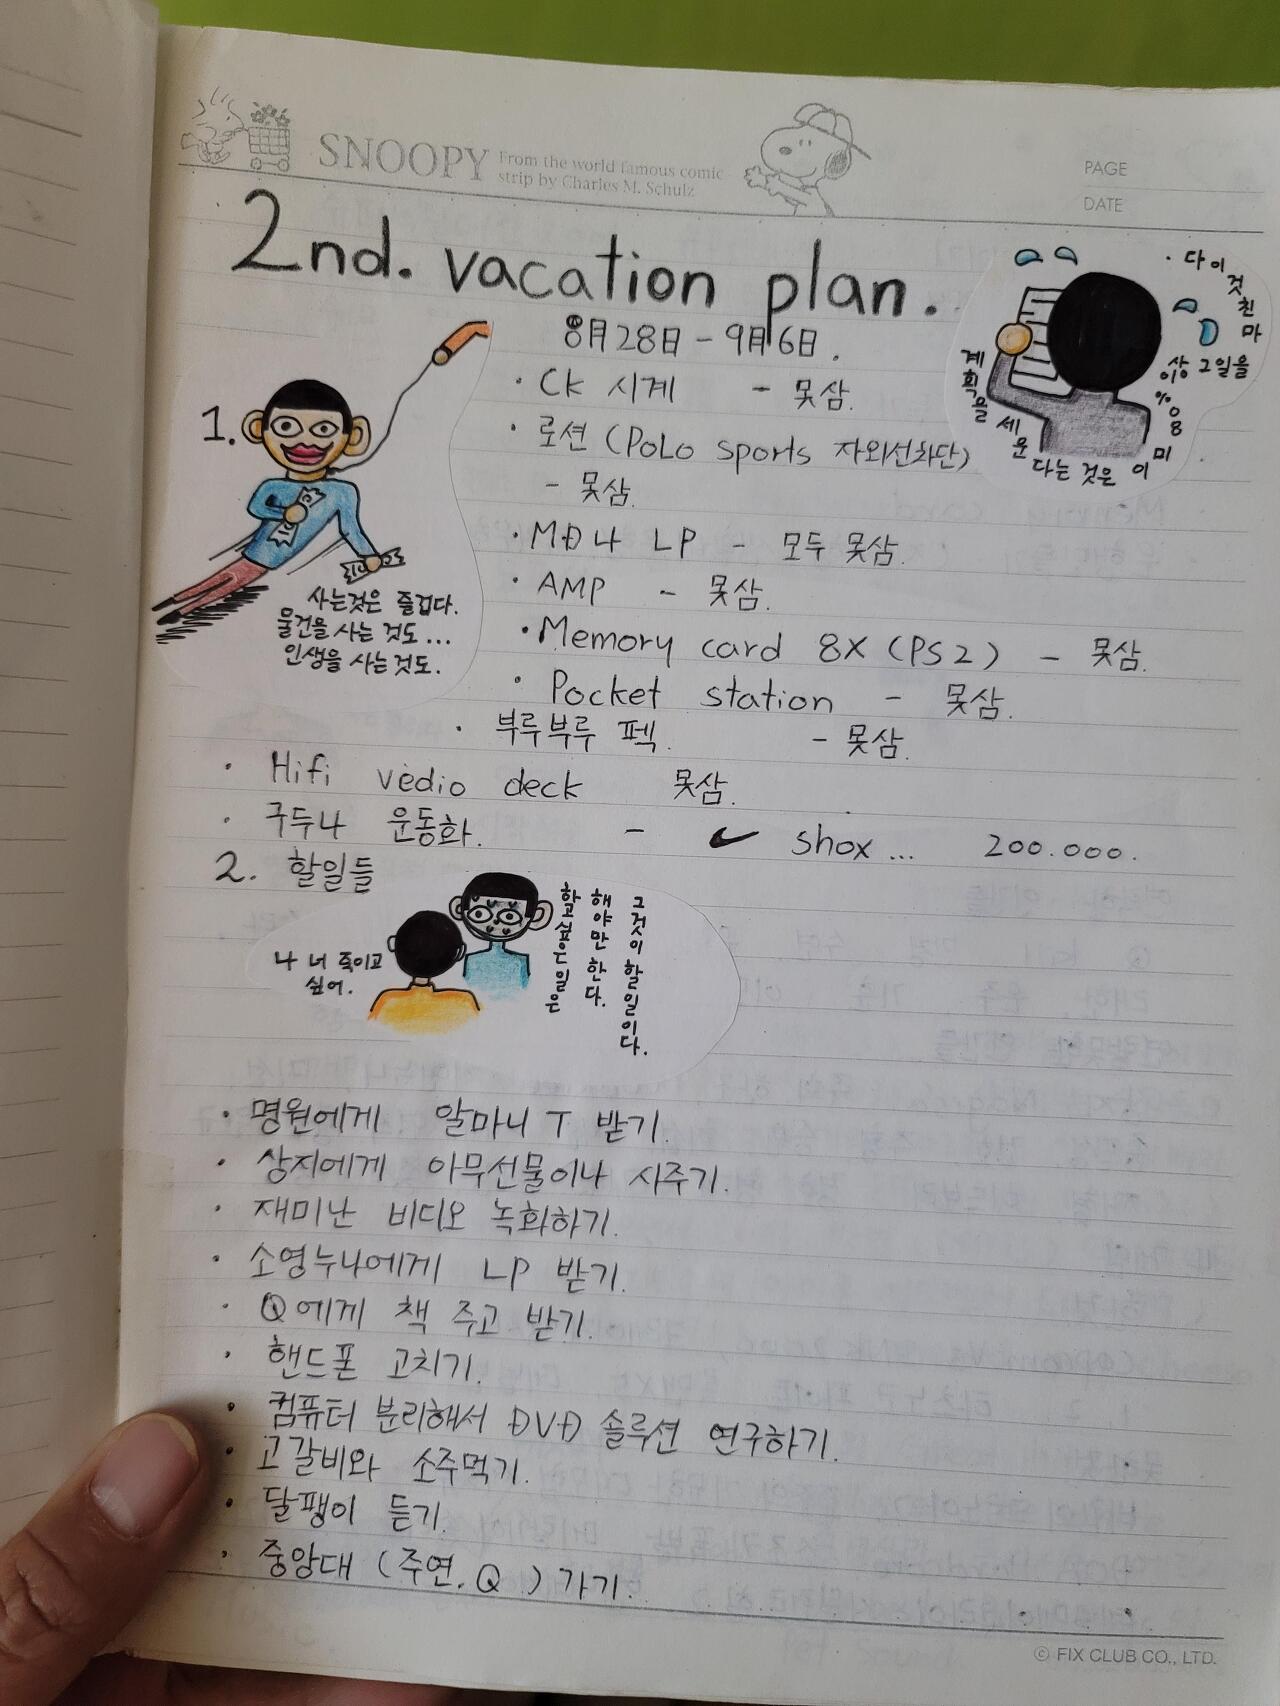 SNOOPY From the world famous comic
strip by Charles M. Schulz
PAGE
DATE
2nd. vacation plan.
8月28日 - 9月6日.
계획을 세운다는 것은 이미 80% 이상 그 일을 다 이것친마
1.
사는것은 즐겁다.
물건을 사는 것도...
인생을 사는것도.
· CK 시계 - 못삼.
· 로션 (POLO sports 자외선차단)
- 못삼.
· MD나 LP - 모두 못삼.
· AMP - 못삼.
· Memory card 8X (PS2) - 못삼.
· Pocket station - 못삼.
· 부루부루 펙. - 못삼.
· Hifi vedio deck 못삼.
· 구두나 운동화. - ✓ shox... 200.000.
2. 할일들
나 너 죽이고
싶어.
하고싶은일은
해야만한다.
그것이할일이다.
· 명원에게 알마니 T 받기.
· 상지에게 아무선물이나 사주기.
· 재미난 비디오 녹화하기.
· 소영누나에게 LP 받기.
· Q에게 책 주고 받기.
· 핸드폰 고치기.
· 컴퓨터 분리해서 DVD 솔루션 연구하기.
· 고갈비와 소주먹기.
· 달팽이 듣기.
· 중앙대 (주연. Q ) 가기.
© FIX CLUB CO., LTD.